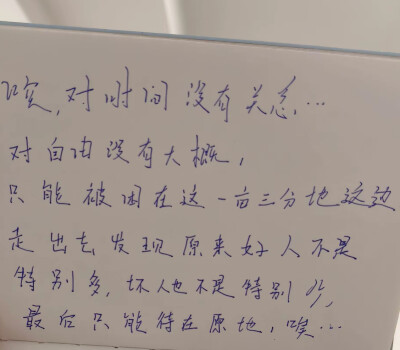 唉,对时间没有关怎…
对自由没有大概,
只能被困在这一亩三分地这边
走出去发现原来好人不是
特别多,坏人也不是特别少,
最后只能待在原地,唉…